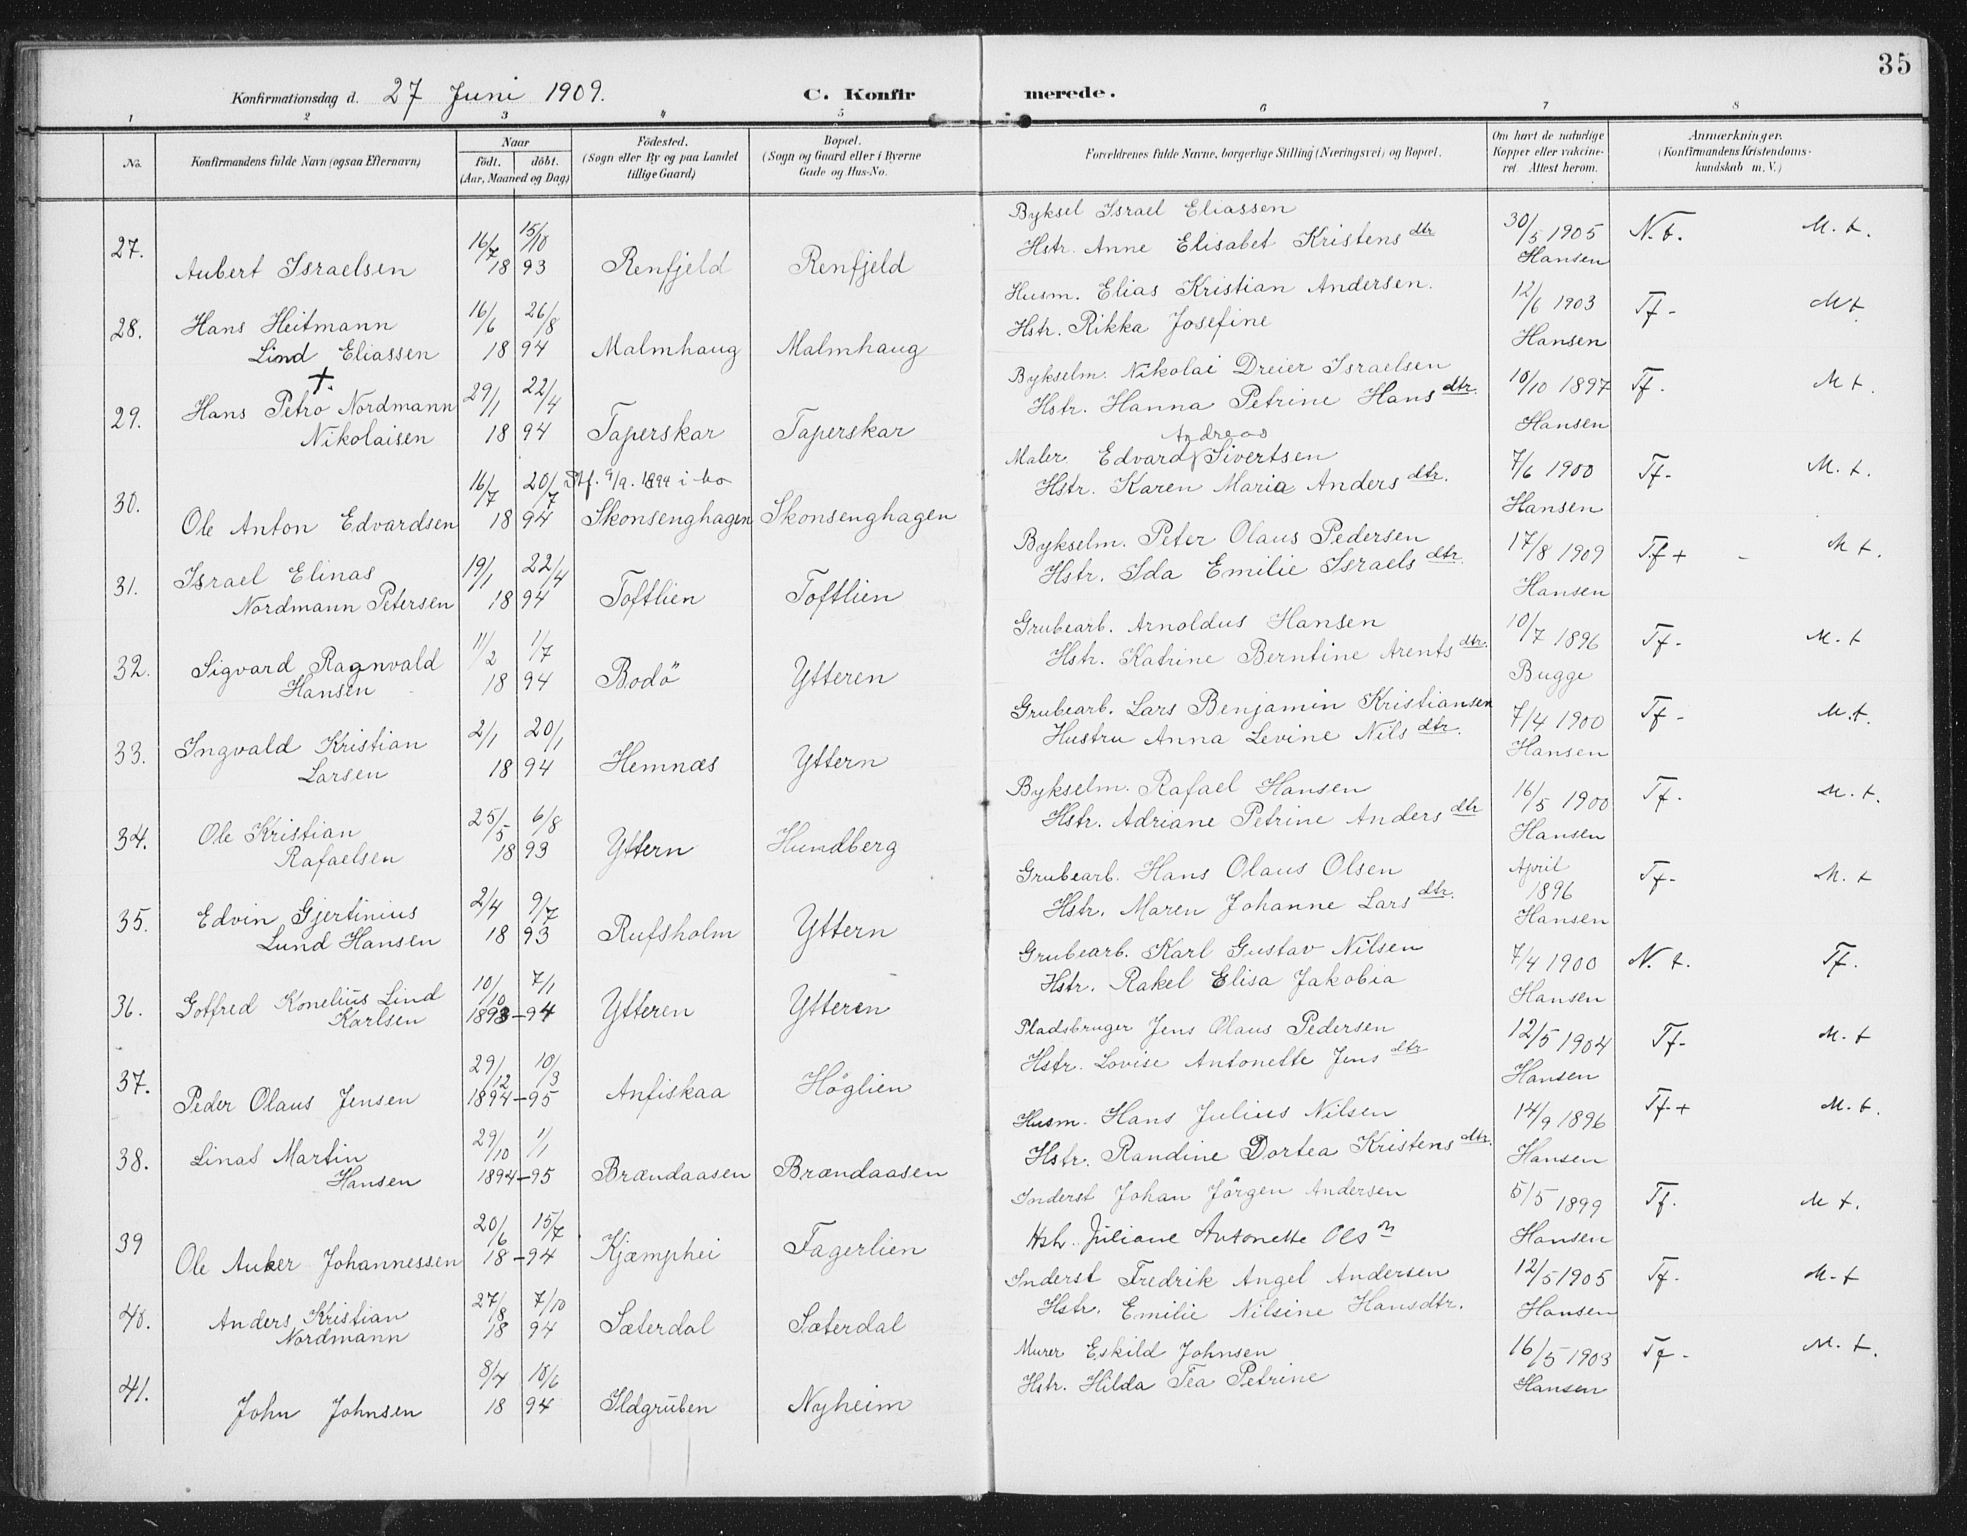 35
Konfirmationsdag d. 27 Juni 1909. C. Konfirmerede.
1 2 3 4 5 6 7 8
No. Konfirmandens fulde Navn (ogsaa Efternavn) Naar födt. döbt. (Aar, Maaned og Dag) Födested. (Sogn eller By og paa Landet tillige Gaard) Bopæl. (Sogn og Gaard eller i Byerne Gade og Hus-No. Forældrenes fulde Navne, borgerlige Stilling (Næringsvei) og Bopæl. Om havt de naturlige Kopper eller vakcineret. Attest herom. Anmærkninger. (Konfirmandens Kristendomskundskab m. V.)
27. Aubert Israelsen 16/7 15/10 18 93 Renfjeld Renfjeld Byksel Israel Eliassen 30/5 1905 N. t. M. t.
Hstr. Anne Elisabet Kristensdtr Hansen
28. Hans Heitmann 16/6 26/8 Husm. Elias Kristian Andersen. 12/6 1903 Tf- Mt.
Lind Eliassen 18 94 Malmhaug Malmhaug Hstr. Rikka Josefine Hansen
+.
29. Hans Petro Nordmann 29/1 22/4 Bykselm. Nikolai Dreier Israelsen 10/10 1897 Tf. M t.
Nikolaisen 18 94 Taperskar Taperskar Hstr. Hanna Petrine Hansdtr. Hansen
30. 16/7 20/7 Stf. 9/9. 1894 i bo Maler Edvard Andreas Sivertsen 7/6 1900 Tf- M. t.
Ole Anton Edvardsen 18 94 Skonsenghagen Skonsenghagen Hstr. Karen Maria Andersdtr. Hansen
31. Israel Elinas 19/1 22/4 Bykselm. Peter Olaus Pedersen 17/8 1909 Tf + - M t.
Nordmann Petersen 18 94 Toftlien Toftlien Hstr. Ida Emilie Israelsdtr. Hansen
32. Sigvard Ragnvald 11/2 1/7 Grubearb. Arnoldus Hansen 10/7 1896 Tf- M. t
Hansen 18 94 Bodö Ytteren Hstr. Katrine Berntine Arentsdtr. Bugge
33. Ingvald Kristian 2/1 20/1 Grubearb. Lars Benjamin Kristiansen 7/4 1900 Tf- M. t.
Larsen 18 94 Hemnæs Yttern Hustru Anna Levine Nilsdtr. Hansen
34. Ole Kristian 25/5 6/8 Bykselm. Rafael Hansen 16/5 1900 Tf. M. t.
Rafaelsen 18 93 Yttern Hundberg Hstr. Adriane Petrine Andersdtr Hansen
35. Edvin Gjertinius 2/4 9/7 Grubearb. Hans Olaus Olsen April 1896 Tf- M. t
Lund Hansen 18 93 Rufsholm Yttern Hstr. Maren Johanne Larsdtr. Hansen
36. Gotfred Konelius Lind 10/10 7/1 Grubearb. Karl Gustav Nilsen 7/4 1900 N. t. Tf.
Karlsen 1893-94 Ytteren Ytteren Hstr. Rakel Elisa Jakobia Hansen
37. 29/12 10/3 Pladsbruger Jens Olaus Pedersen 12/5 1904 Tf- M. t
Peder Olaus Jensen 1894-95 Anfiskaa Höglien Hstr. Lovise Antonette Jensdtr Hansen
38. Linas Martin 29/10 1/1 Husm. Hans Julius Nilsen 14/9 1896 Tf+ M. t.
Hansen 1894-95 Brændaasen Brændaasen Hstr. Randine Dortea Kristensdtr. Hansen
39 20/6 15/7 Inderst Johan Jörgen Andersen 5/5 1899 Tf. M t.
Ole Anker Johannessen 18-94 Kjæmphei Fagerlien Hstr. Juliane Antonette Olsn Hansen
40. Anders Kristian 27/8 7/10 Inderst Fredrik Angel Andersen 12/5 1905 Tf- M-t
Nordmann 18 94 Sæterdal Sæterdal Hstr. Emilie Nilsine Hansdtr. Hansen
41. 8/4 10/6 Murer Eskild Johnsen 16/5 1903 Tf- M. t.
John Johnsen 18 94 Ildgruben Nyheim Hstr. Hilda Tea Petrine Hansen